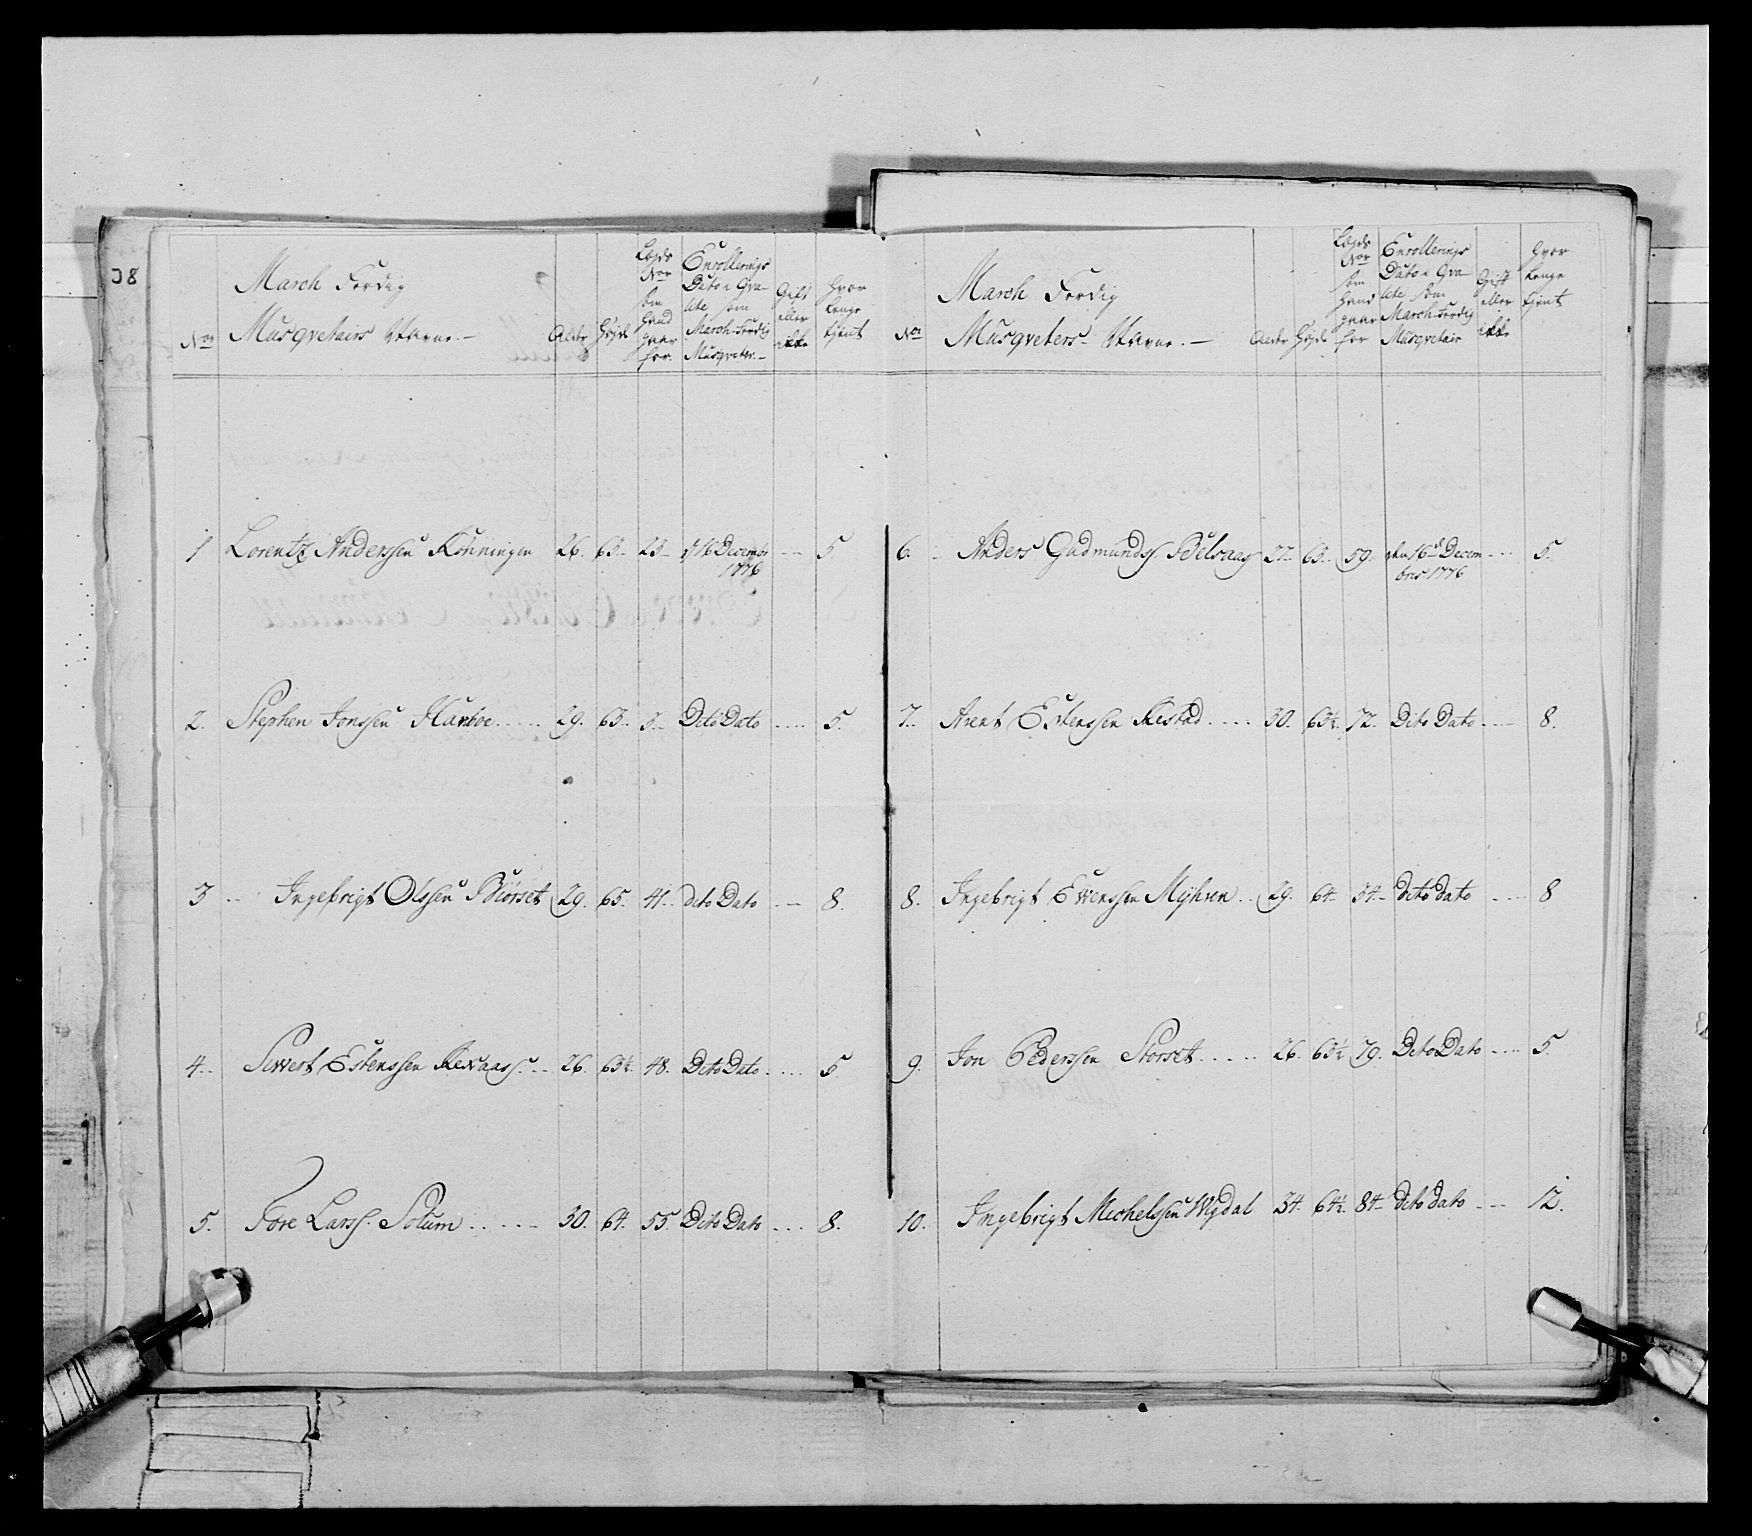 38
March Ferdig
Musqveteirs Navne.
No
Alder
Højde
Lægds
Nor
som
hand
gaar
for.
Enrollerings
Dato i Qva-
lite som
March-Ferdig
Musqveter.
Gift
eller
ikke
hvor
lenge
tient
1 Lorentz Anderssen Rønningen 26. 63. 23 d 16 Decembr 1776 5.
2. Stephen Jonssen Harboe 29. 63. 5. Dito Dato 5.
3 Ingebrigt Olssen Biörset 29. 65. 41. dito Dato 8.
4. Siwert Estenssen Rexaas 26. 63½. 48. Dito Dato 5.
5. Tore Larss. Solum 30. 64. 55. Dito Dato 8.
March Ferdig
Musqveters Navne.
No
Alder
Højde
Lægds
Nor
som
hand
gaar
for
Enrollerings
Dato i Qva-
lite som
March-Ferdig
Musqvetair
Gift
eller
ikke
hvor
lenge
tient
6. Anders Gudmundss. Bölsnæs 27. 63. 59. den 16de Decem-
bris 1776 5.
7. Arent Estenssen Restad 30. 63½. 72. Dito Dato 8.
8. Ingebrigt Ewenssen Myhren 29. 64. 34. dito dato 8
9. Jon Pederssen Storset 26. 63½ 79. Dito Dato 5.
10. Ingebrigt Michelssen Wigdal 34. 64½. 84 dito dato 12.